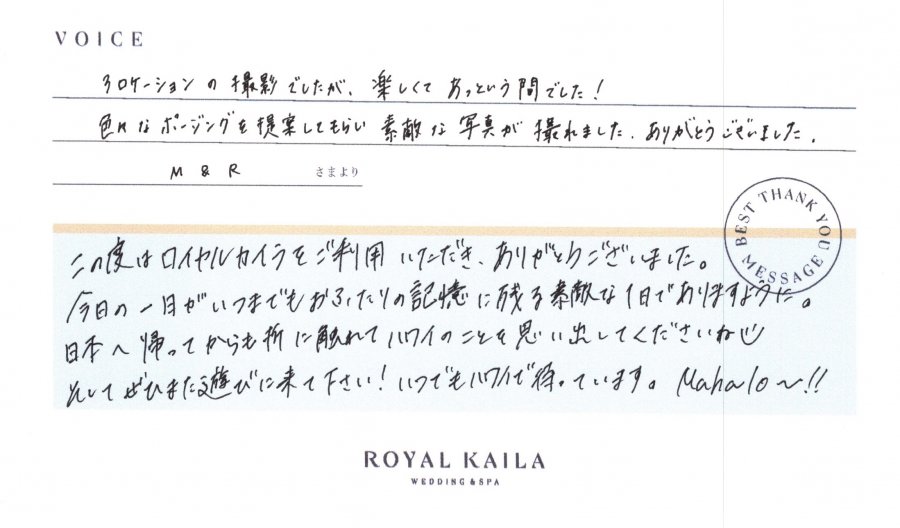 VOICE
3ロケーションの撮影でしたが、楽しくてあっという間でした!
色々なポージングを提案してもらい素敵な写真が撮れました。ありがとうございました。
M & R さまより
BEST THANK YOU MESSAGE.
この度はロイヤルカイラをご利用いただき、ありがとうございました。
今日の一日がいつまでもおふたりの記憶に残る素敵な1日でありますように。
日本へ帰ってからも折に触れてハワイのことを思い出してくださいね
そしてぜひまた遊びに来て下さい!いつでもハワイで待っています。Mahalo〜!!
ROYAL KAILA
WEDDING & SPA